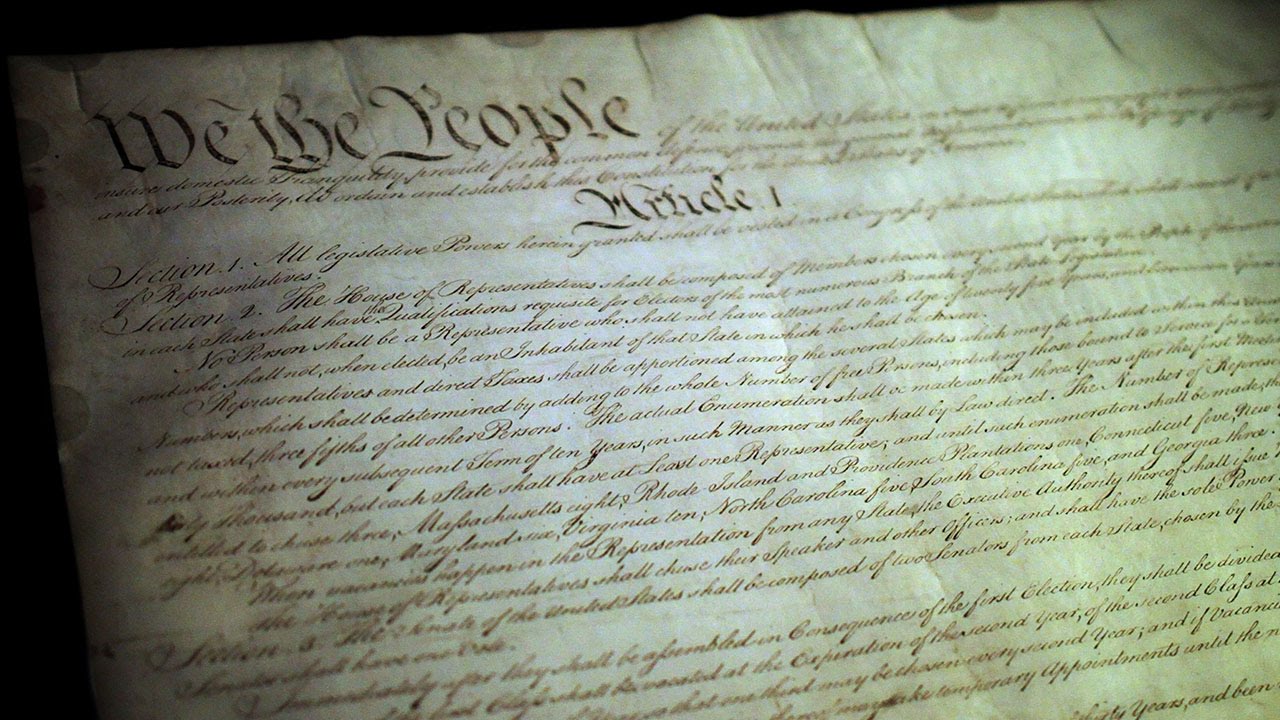 We the People of the United States
insure domestic Tranquility, provide for the common
and our Posterity, do ordain and establish this Constitution for the United States of America.
Article. I.
Section. 1. All legislative Powers herein granted shall be vested in a Congress of the United
of Representatives.
Section. 2. The House of Representatives shall be composed of Members chosen every second Year by the People of the
in each State shall have the Qualifications requisite for Electors of the most numerous Branch of the State Legislature.
No Person shall be a Representative who shall not have attained to the Age of twenty five Years, and been seven Years
and who shall not, when elected, be an Inhabitant of that State in which he shall be chosen.
Representatives and direct Taxes shall be apportioned among the several States which may be included within this
Numbers, which shall be determined by adding to the whole Number of free Persons, including those bound to Service for a
not taxed, three fifths of all other Persons. The actual Enumeration shall be made within three Years after the first Meeting
and within every subsequent Term of ten Years, in such Manner as they shall by Law direct. The Number of Represent
thirty Thousand, but each State shall have at Least one Representative; and until such enumeration shall be made, the
entitled to chuse three, Massachusetts eight, Rhode Island and Providence Plantations one, Connecticut five, New
eight, Delaware one, Maryland six, Virginia ten, North Carolina five, South Carolina five, and Georgia three.
When vacancies happen in the Representation from any State, the Executive Authority thereof shall issue
The House of Representatives shall chuse their Speaker and other Officers; and shall have the sole Power
Section. 3. The Senate of the United States shall be composed of two Senators from each State, chosen by the
Senator shall have one Vote.
Immediately after they shall be assembled in Consequence of the first Election, they shall be divided
Class shall be vacated at the Expiration of the second Year, of the second Class at
that one third may be chosen every second Year; and if Vacanc
make temporary Appointments until the
thirty Years, and been